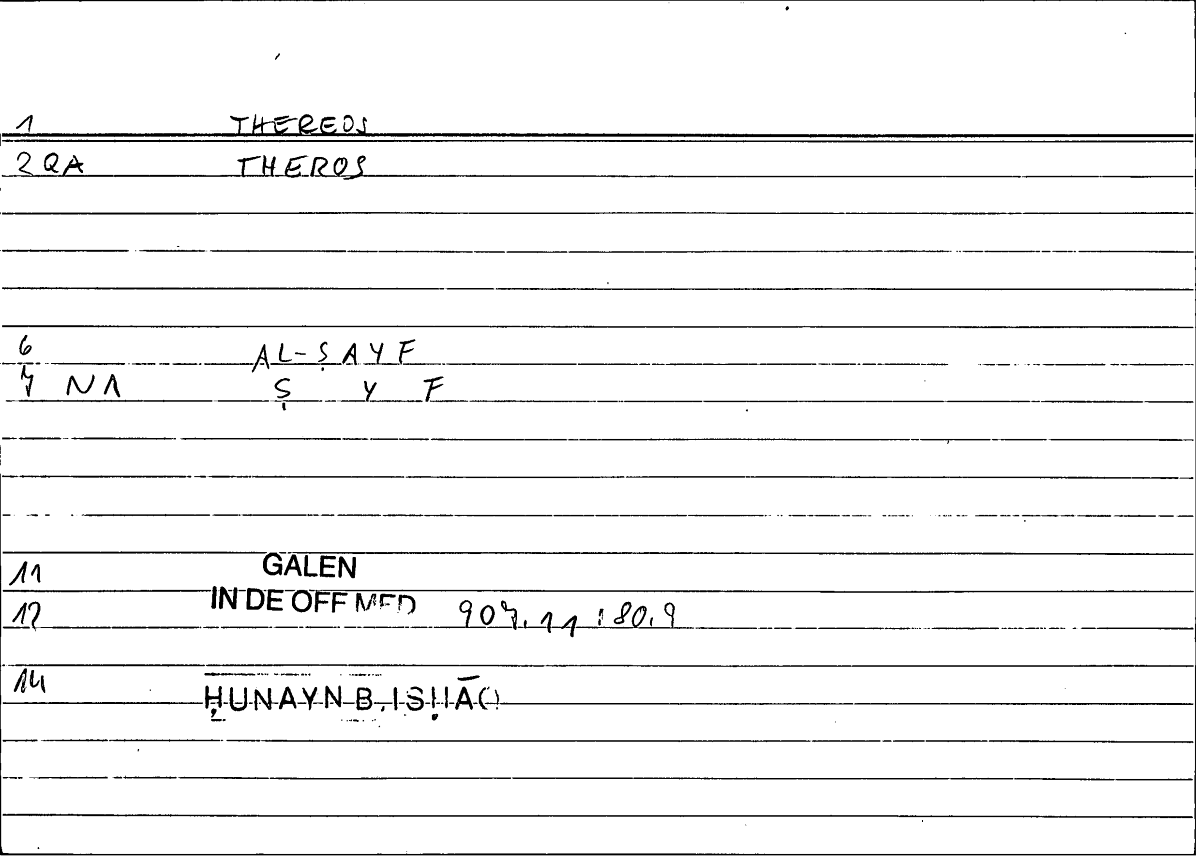 1 THEREOS
2 QA THEROS
6 AL-ṢAYF
7 NA Ṣ Y F
11 GALEN
12 IN DE OFF MED 907.11 : 80.9
14 ḤUNAYN B. ISḤĀQ